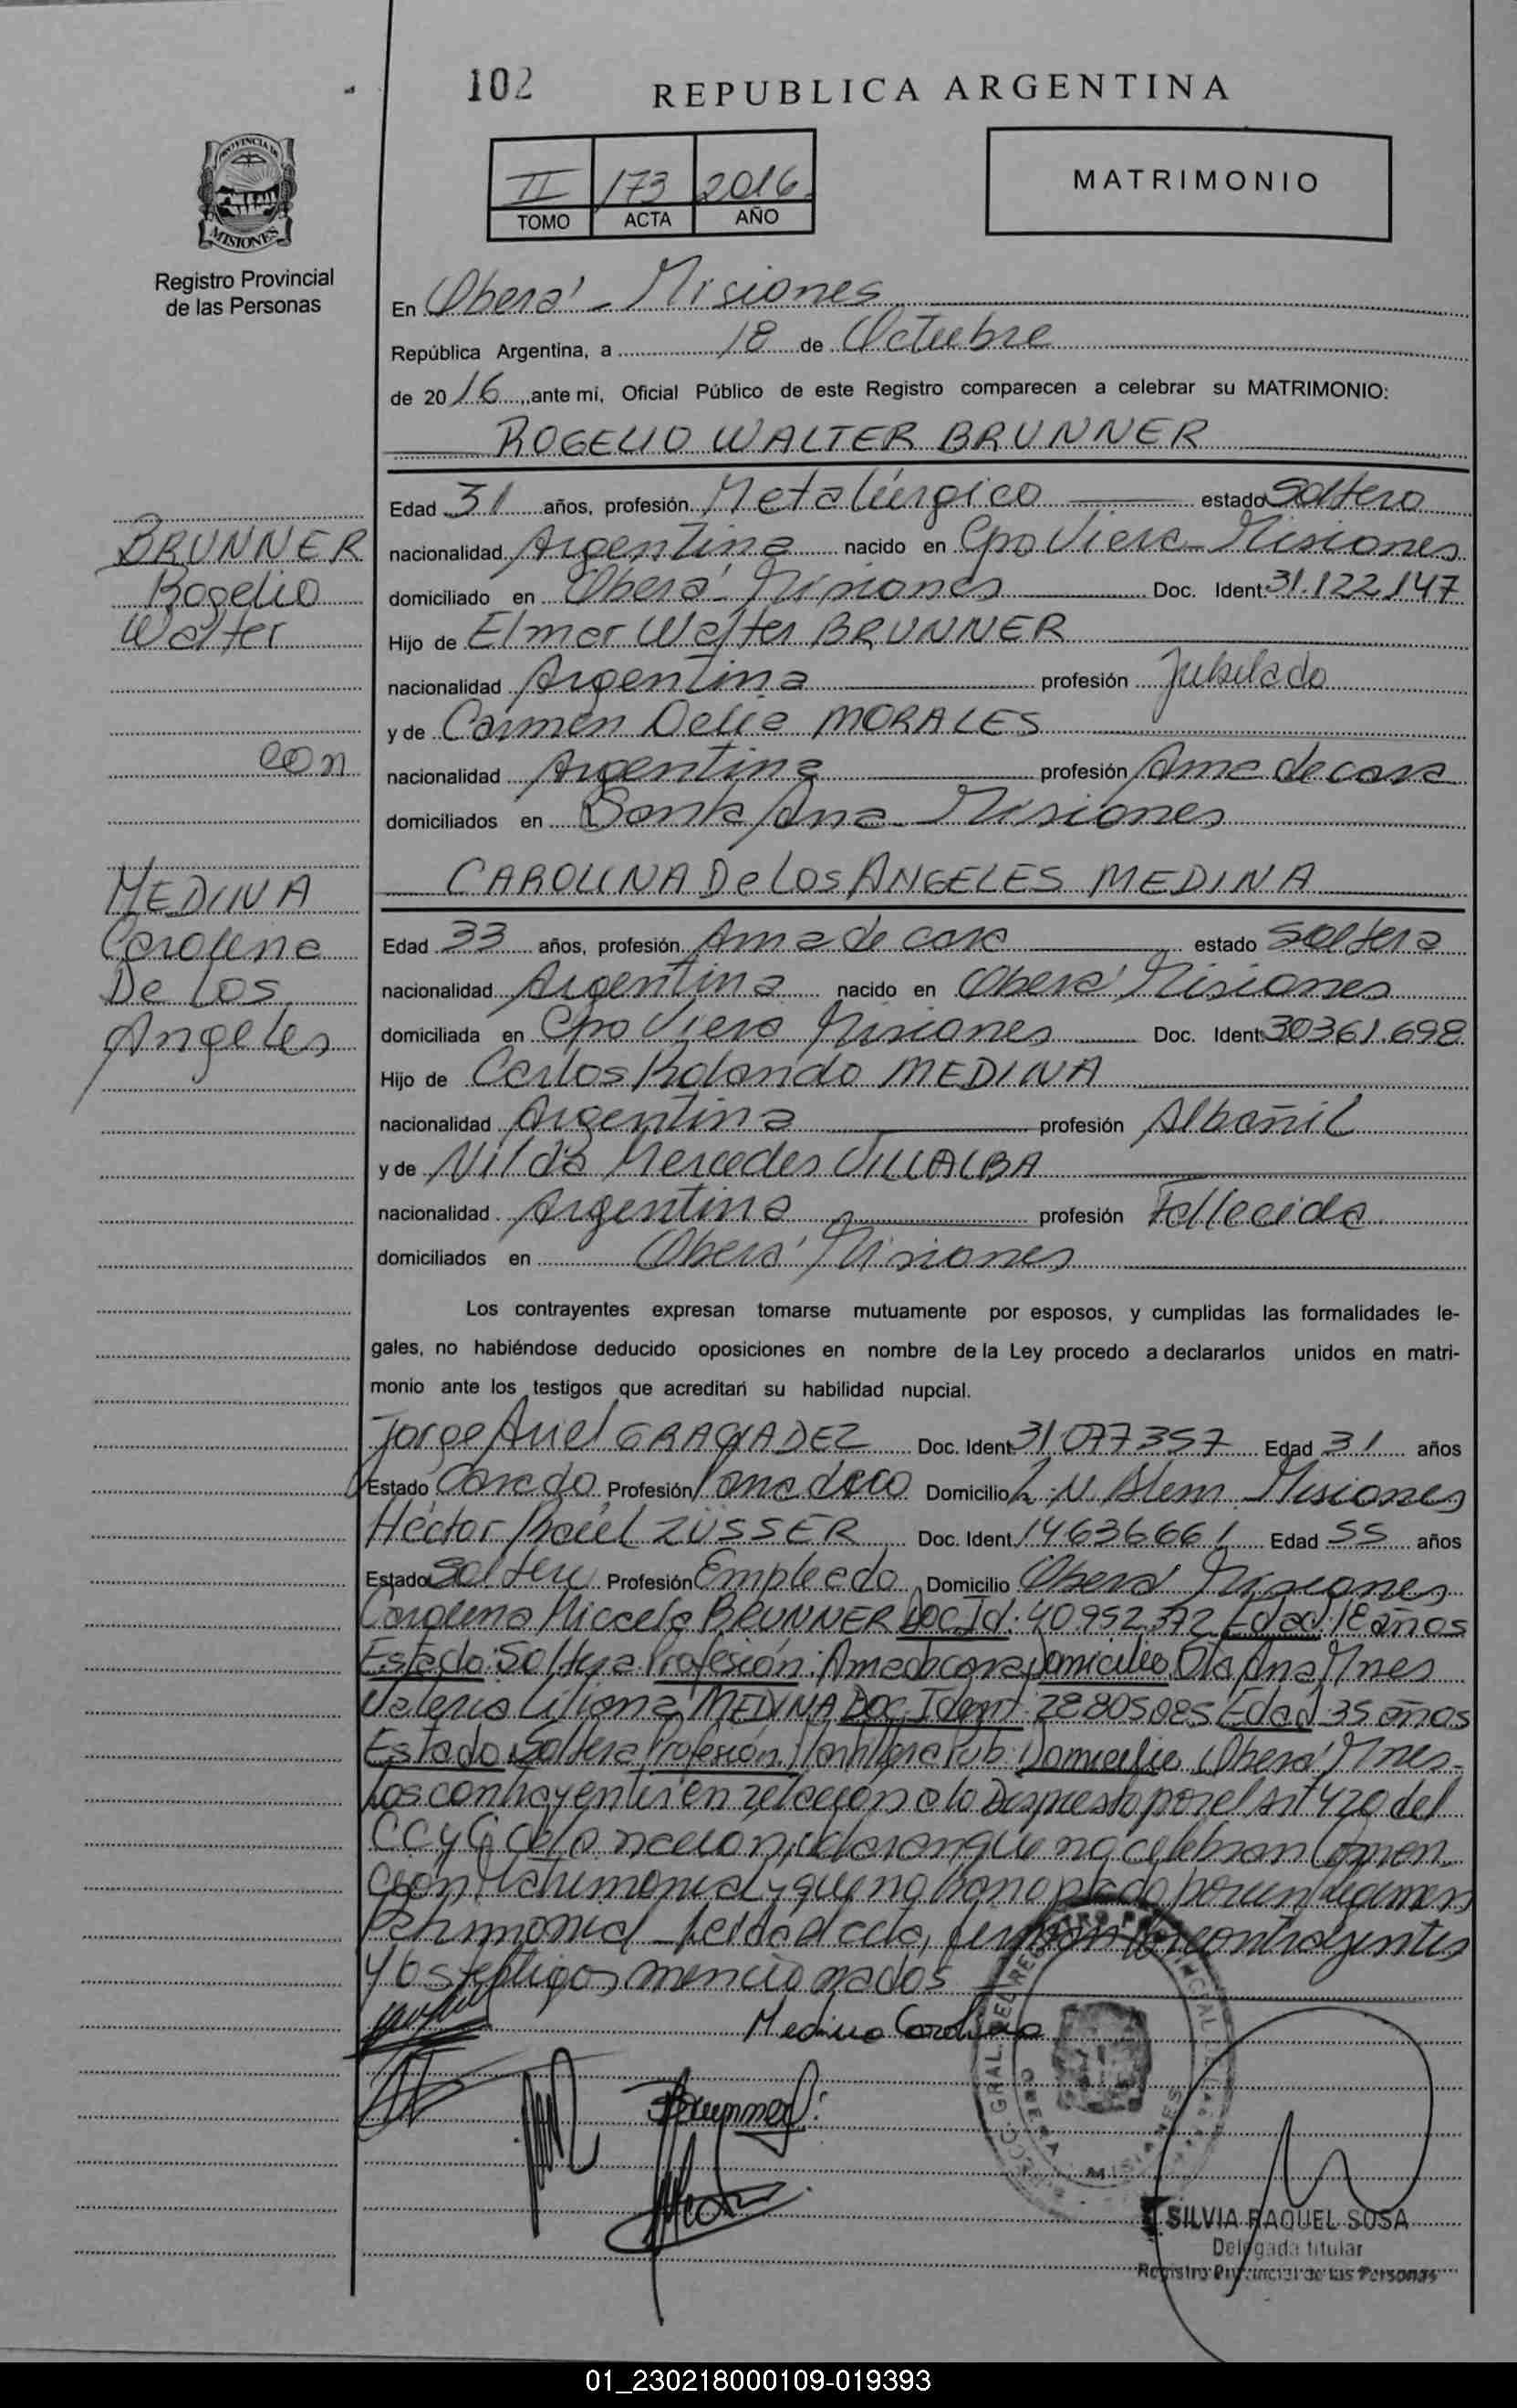 102
REPUBLICA ARGENTINA
II 173 2016
TOMO ACTA AÑO
MATRIMONIO
PROVINCIA DE
MISIONES
Registro Provincial
de las Personas
En Oberá - Misiones
República Argentina, a 18 de Octubre
de 20 16, ante mi, Oficial Público de este Registro comparecen a celebrar su MATRIMONIO:
ROGELIO WALTER BRUNNER
Edad 31 años, profesión Metalúrgico estado Soltero
BRUNNER
nacionalidad Argentina nacido en Cpo Viera - Misiones
Rogelio
domiciliado en Oberá Misiones Doc. Ident. 31.122.147
Walter
Hijo de Elmer Walter BRUNNER
nacionalidad Argentina profesión Jubilado
y de Carmen Delia MORALES
con
nacionalidad Argentina profesión Ama de casa
domiciliados en Santa Ana - Misiones
MEDINA
CAROLINA De Los ANGELES MEDINA
Carolina
Edad 33 años, profesión Ama de casa estado Soltera
De Los
nacionalidad Argentina nacido en Oberá Misiones
Angeles
domiciliada en Cpo Viera Misiones Doc. Ident. 30361.698
Hijo de Carlos Rolando MEDINA
nacionalidad Argentina profesión Albañil
y de Nilda Mercedes VILLALBA
nacionalidad Argentina profesión Fallecida
domiciliados en Oberá Misiones
Los contrayentes expresan tomarse mutuamente por esposos, y cumplidas las formalidades le-
gales, no habiéndose deducido oposiciones en nombre de la Ley procedo a declararlos unidos en matri-
monio ante los testigos que acreditan su habilidad nupcial.
Jorge Ariel Doc. Ident 31077357 Edad 31 años
Estado Casado Profesión Panadero Domicilio L. N. Alem Misiones
Héctor Raúl ZÜSSER Doc. Ident 14636661 Edad 55 años
Estado Soltero Profesión Empleado Domicilio Oberá Misiones
Carolina Micaela BRUNNER Doc. Id: 40.952.372 Edad: 18 años
Estado: Soltera Profesión: Ama de casa Domicilio Sta Ana Mnes
Valeria Liliana MEDINA Doc. Ident: 28805085 Edad 35 años
Estado Soltera Profesión Pub. Domicilio Oberá Mnes-
Los contrayentes en relación a lo Dispuesto por el Art 420 del
CC y C de la nación, declaran que no celebran Conven
ción Matrimonial y que no han optado por un régimen
Patrimonial - Leída el acta, firman los contrayentes
y los testigos mencionados
Medina Carolina
Brunner
SILVIA RAQUEL SOSA
Delegada titular
Registro Provincial de las Personas
01_230218000109-019393